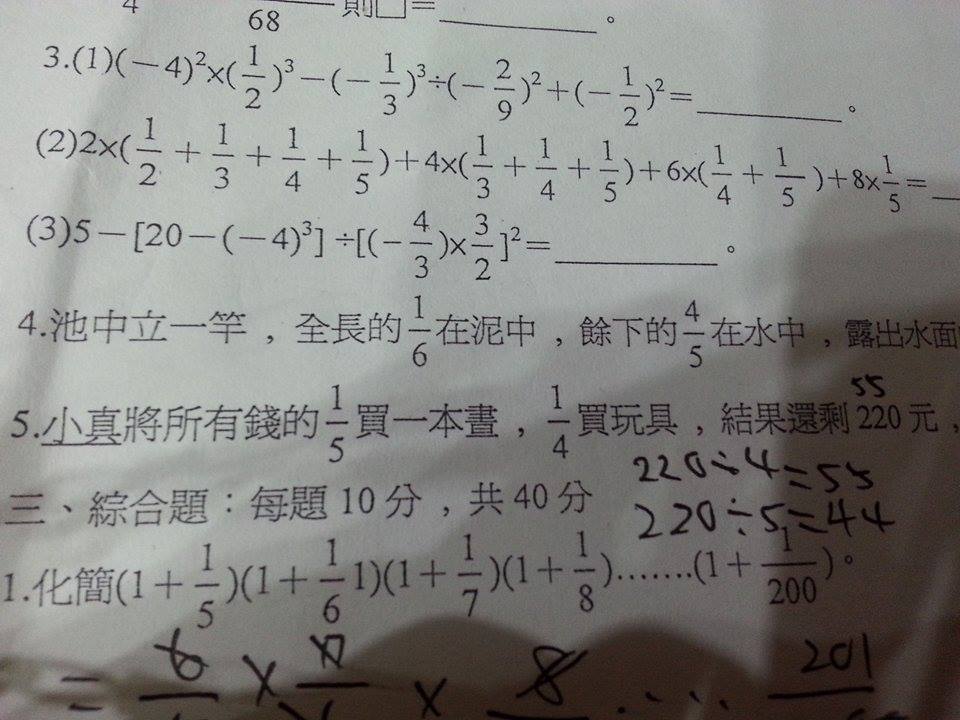 4 68 則□=______。
3.(1)(−4)²×(1/2)³−(−1/3)³÷(−2/9)²+(−1/2)²=______。
(2)2×(1/2+1/3+1/4+1/5)+4×(1/3+1/4+1/5)+6×(1/4+1/5)+8×1/5=__
(3)5−[20−(−4)³]÷[(−4/3)×3/2]²=______。
4.池中立一竿，全長的1/6在泥中，餘下的4/5在水中，露出水面
55
5.小真將所有錢的1/5買一本畫，1/4買玩具，結果還剩220元，
220÷4=55
三、綜合題：每題10分，共40分
220÷5=44
1.化簡(1+1/5)(1+1/6 1)(1+1/7)(1+1/8).......(1+1/200)。
= 6 × 7 × 8 ... 201